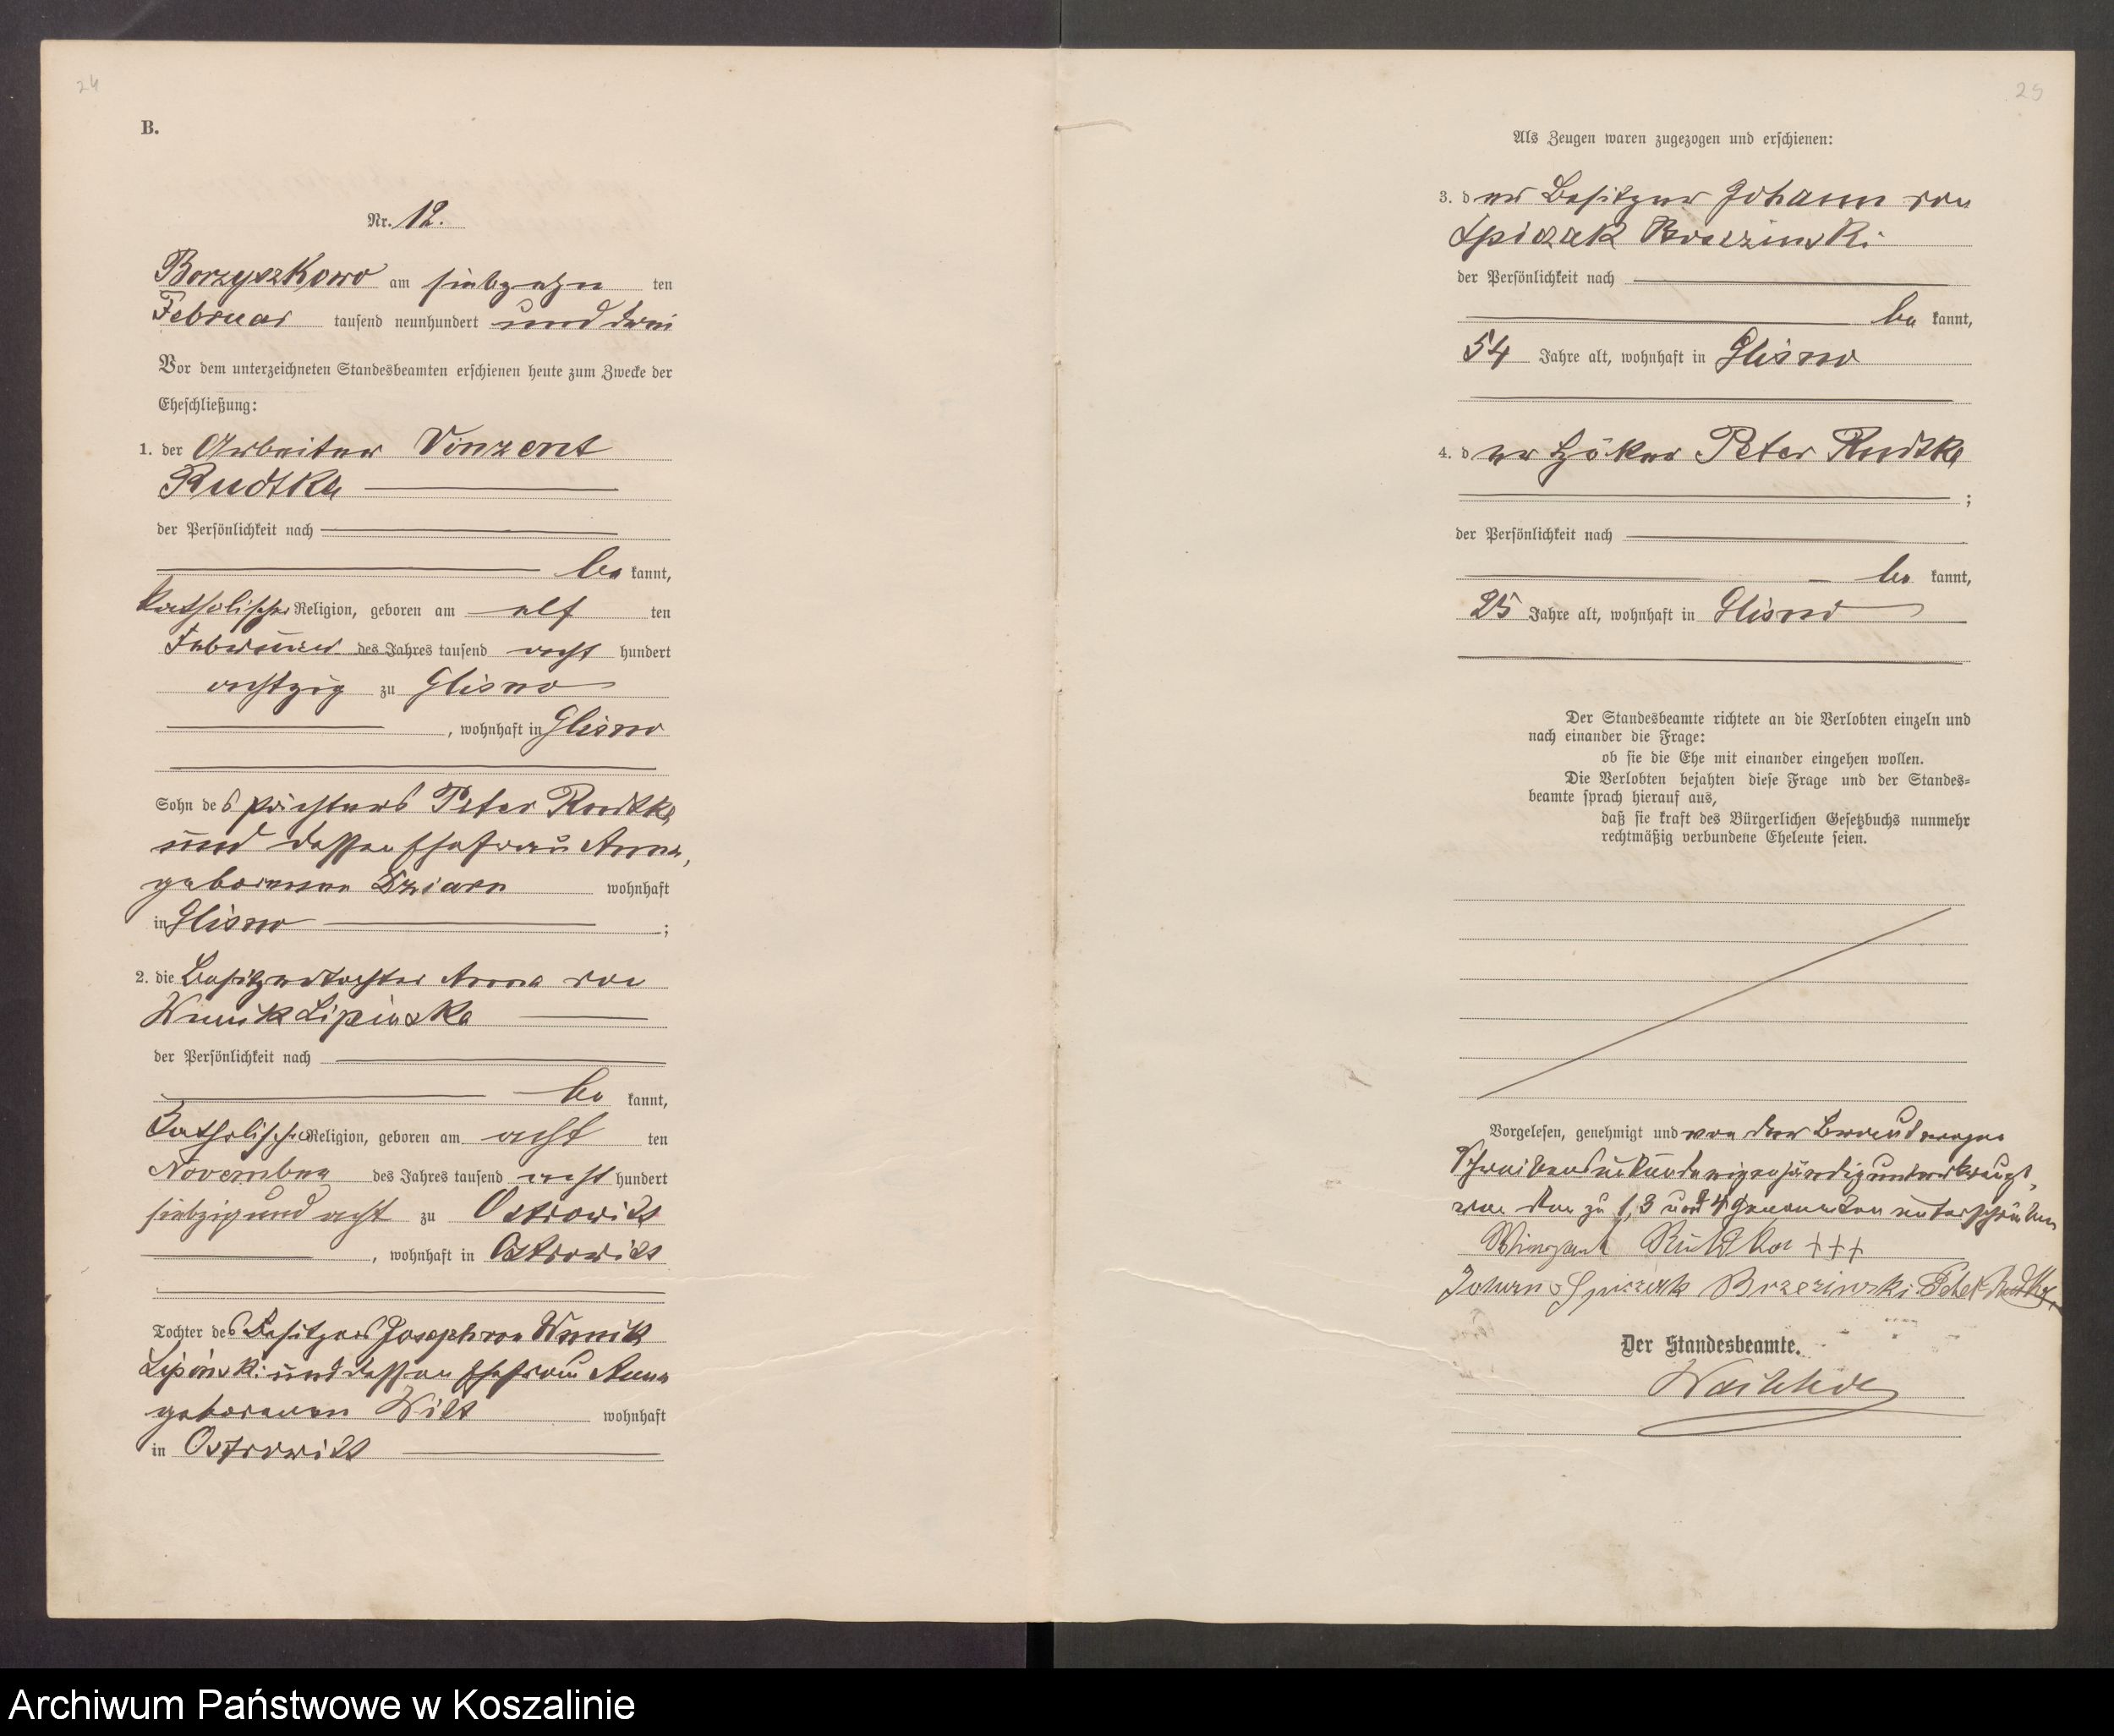 24
B.
Nr. 12.
Borzyszkowo am siebzehn ten
Februar tausend neunhundert und drei
Vor dem unterzeichneten Standesbeamten erschienen heute zum Zwecke der
Eheschließung:
1. der Arbeiter Vinzent
Rudtke
der Persönlichkeit nach
be kannt,
katholischer Religion, geboren am elf ten
Februar des Jahres tausend acht hundert
achtzig zu Glisno
, wohnhaft in Glisno
Sohn des Pächters Peter Rudtke
und dessen Ehefrau Anna,
geborenen Dziarn wohnhaft
in Glisno ;
2. die Besitzertochter Anna von
Wnuk Lipinska
der Persönlichkeit nach
be kannt,
katholischer Religion, geboren am acht ten
November des Jahres tausend acht hundert
siebzig und acht zu Ostrowitt
, wohnhaft in Ostrowitt
Tochter des Besitzers Joseph von Wnuk
Lipinski und dessen Ehefrau Anna
geborenen Wilt wohnhaft
in Ostrowitt
25
Als Zeugen waren zugezogen und erschienen:
3. der Besitzer Johann von
Spiczak Brzezinski
der Persönlichkeit nach
be kannt,
54 Jahre alt, wohnhaft in Glisno
4. der Höker Peter Rudtke
;
der Persönlichkeit nach
be kannt,
25 Jahre alt, wohnhaft in Glisno
Der Standesbeamte richtete an die Verlobten einzeln und
nach einander die Frage:
ob sie die Ehe mit einander eingehen wollen.
Die Verlobten bejahten diese Frage und der Standes-
beamte sprach hierauf aus,
daß sie kraft des Bürgerlichen Gesetzbuchs nunmehr
rechtmäßig verbundene Eheleute seien.
Vorgelesen, genehmigt und von der Braut wegen
Schreibensunkunde eigenhändig unterkreuzt,
von den zu 1, 3 und 4 Genannten unterschrieben
Rudtka +++
Johann Spiczak Brzezinski Peter Rudtke
Der Standesbeamte.